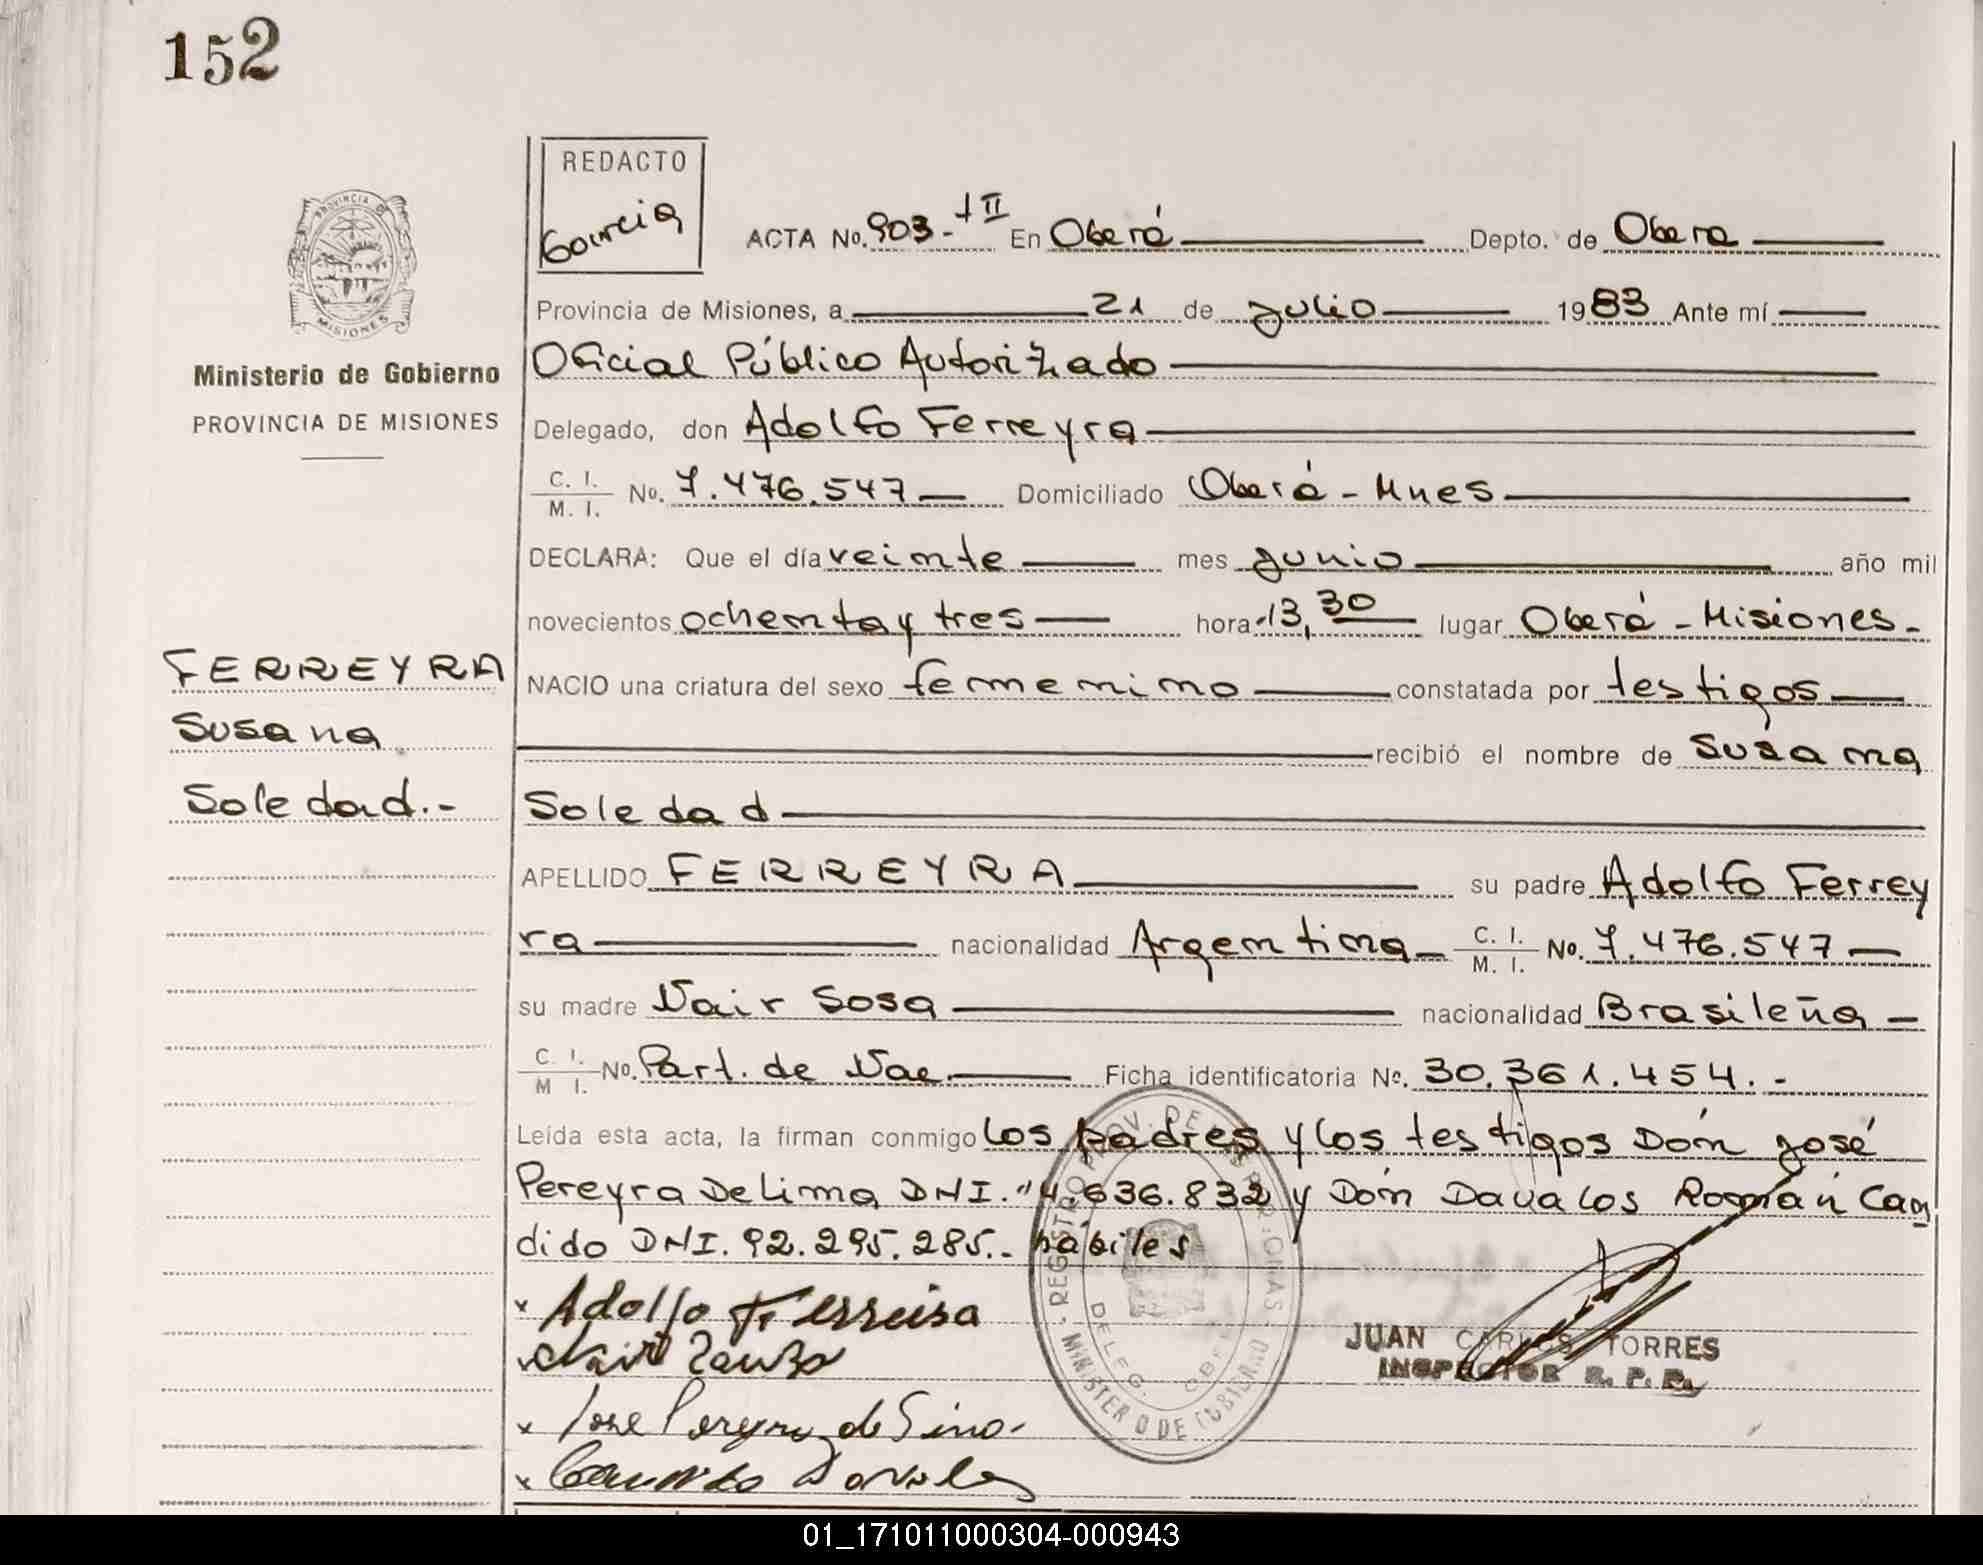 152
REDACTO
Garcia
ACTA No. 903- tII En Oberá Depto. de Obera
PROVINCIA DE
MISIONES
Provincia de Misiones, a 21 de Julio 1983 Ante mí
Ministerio de Gobierno
PROVINCIA DE MISIONES
Oficial Público Autorizado
Delegado, don Adolfo Ferreyra
C. I. / M. I. No. 7.476.547 Domiciliado Oberá - Mnes
DECLARA: Que el día veinte mes junio año mil
novecientos ochenta y tres hora 13,30 lugar Oberá - Misiones-
FERREYRA
Susana
Soledad.-
NACIO una criatura del sexo femenino constatada por testigos
recibió el nombre de Susana
Soledad
APELLIDO FERREYRA su padre Adolfo Ferrey
ra nacionalidad Argentina C. I. / M. I. No. 7.476.547
su madre Nair Sosa nacionalidad Brasileña
C. I. / M I. No. Part. de Nac. Ficha identificatoria Nº. 30.361.454.-
Leída esta acta, la firman conmigo los padres y los testigos Don José
Pereyra De Lima DNI. 4.636.832 y Don Davalos Román Can
dido DNI. 92.295.285.- hábiles
x Adolfo Ferreira
Nair
x Jose Pereyra de Lima
x Candido Davalos
REGISTRO PROV. DE LAS PERSONAS - MINISTERIO DE GOBIERNO
DELEG. OBERA
JUAN CARLOS TORRES
INSPECTOR R. P. P.
01_171011000304-000943